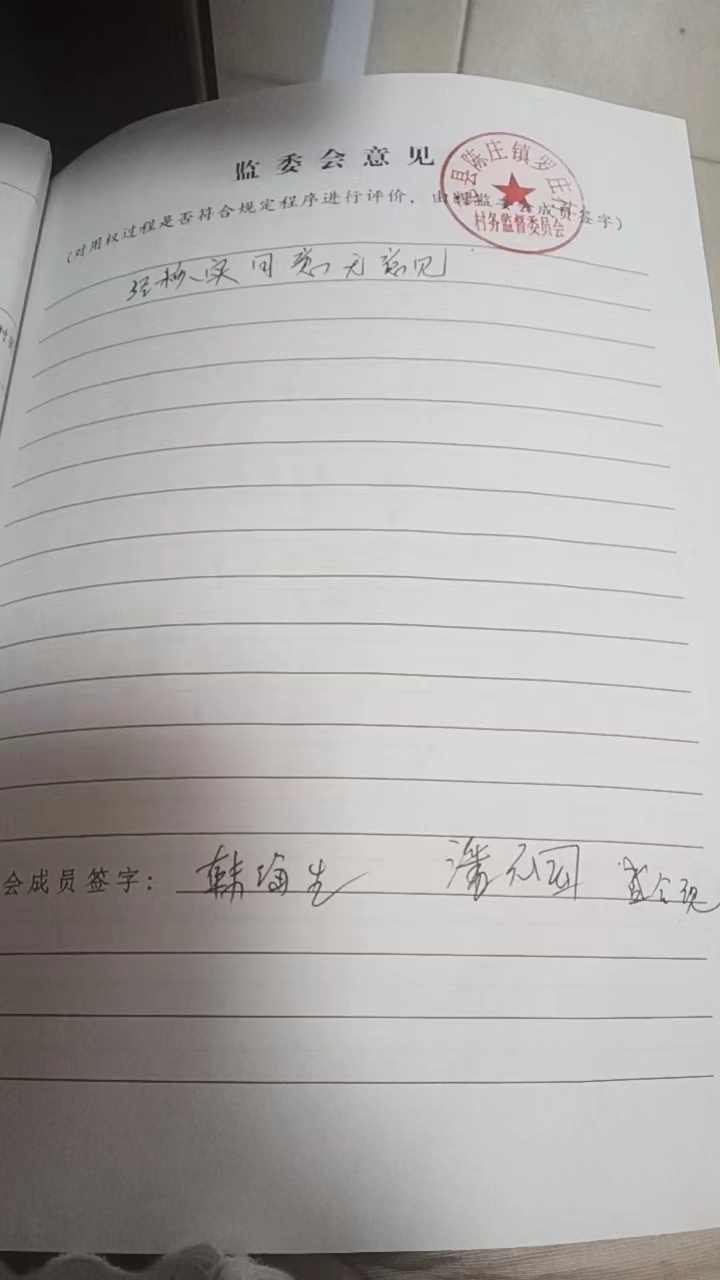 监委会意见
县陈庄镇罗庄村
村务监督委员会
(对用权过程是否符合规定程序进行评价，由村监委会成员签字)
经核实同意无意见
会成员签字：韩海生 潘